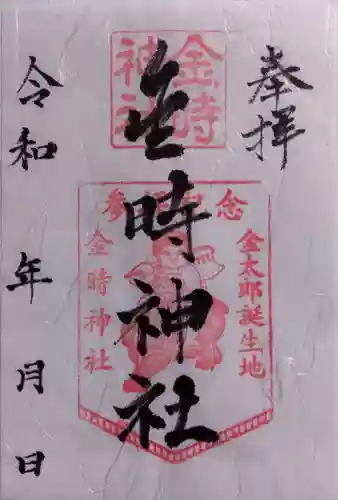 奉拝
金時神社
令和 年 月 日
金時
神社
参拝記念
金太郎誕生地
金時神社